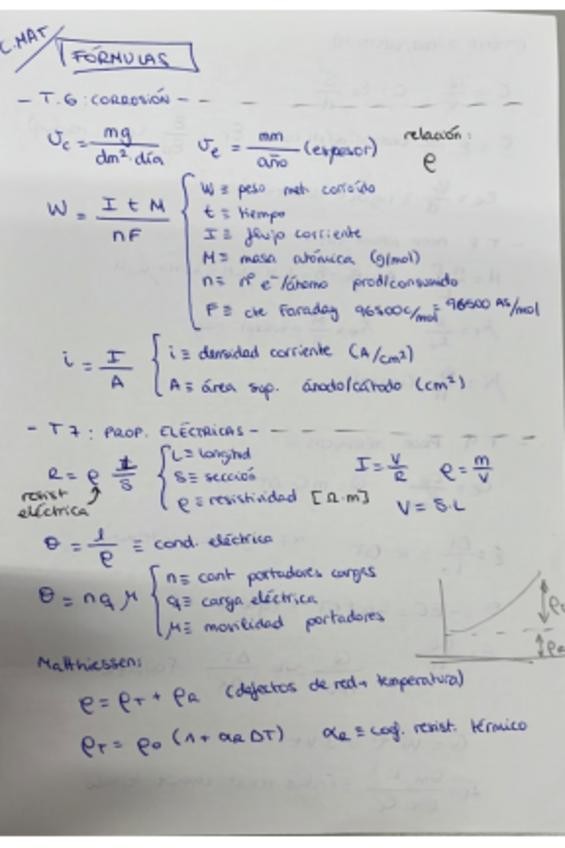 C.MAT
FÓRMULAS
- T.6: CORROSIÓN -
υc = mg / dm²·día   υe = mm / año (espesor)   relación: ρ
W = I t M / nF
W ≡ peso met. corroído
t ≡ tiempo
I ≡ flujo corriente
M ≡ masa atómica (g/mol)
n ≡ nº e⁻/átomo prod/consumido
F ≡ cte Faraday 96500C/mol = 96500 AS/mol
i = I / A
i ≡ densidad corriente (A/cm²)
A ≡ área sup. ánodo/cátodo (cm²)
- T7: PROP. ELÉCTRICAS -
R = ρ L / S
resist eléctrica
L ≡ longitud
S ≡ sección
ρ ≡ resistividad [Ω·m]
I = V / R   ρ = m / V
V = S·L
θ = 1 / ρ ≡ cond. eléctrica
θ = n q μ
n ≡ cant portadores cargas
q ≡ carga eléctrica
μ ≡ movilidad portadores
Matthiessen:
ρ = ρT + ρR (defectos de red + temperatura)
ρT = ρ0 (1 + αR ΔT)   αR ≡ coef. resist. térmico